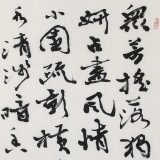 眾芳搖落獨
妍占盡風情
小園疏影橫
水清淺暗香